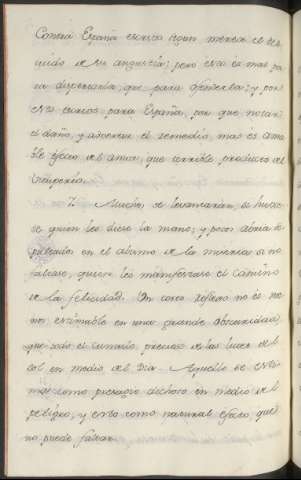 Contra España escrivo segun merece el
quido de su angustia; pero esto es mas pa
ra dispertarla, que para ofenderla; y por
esto escrivo para España, por que notar
el daño, y asperar el remedio, mas es ama
ble efecto del amor, que terrible producto del
vituperio.
7. Muchos se levantaran, si huvie
se quien les diese la mano; y pocos abrian se
pultados en el abismo de la miseria si no
faltase, quien les manifestase el camino
de la felicidad. Un corto reflexo no es me
nos estimable en una grande obscuridad,
que todo el cumulo precioso de las luces del
sol en medio del Dia. Aquello se esti
ma como presagio dichoso en medio del
peligro, y esto como natural efecto que
no puede faltar.